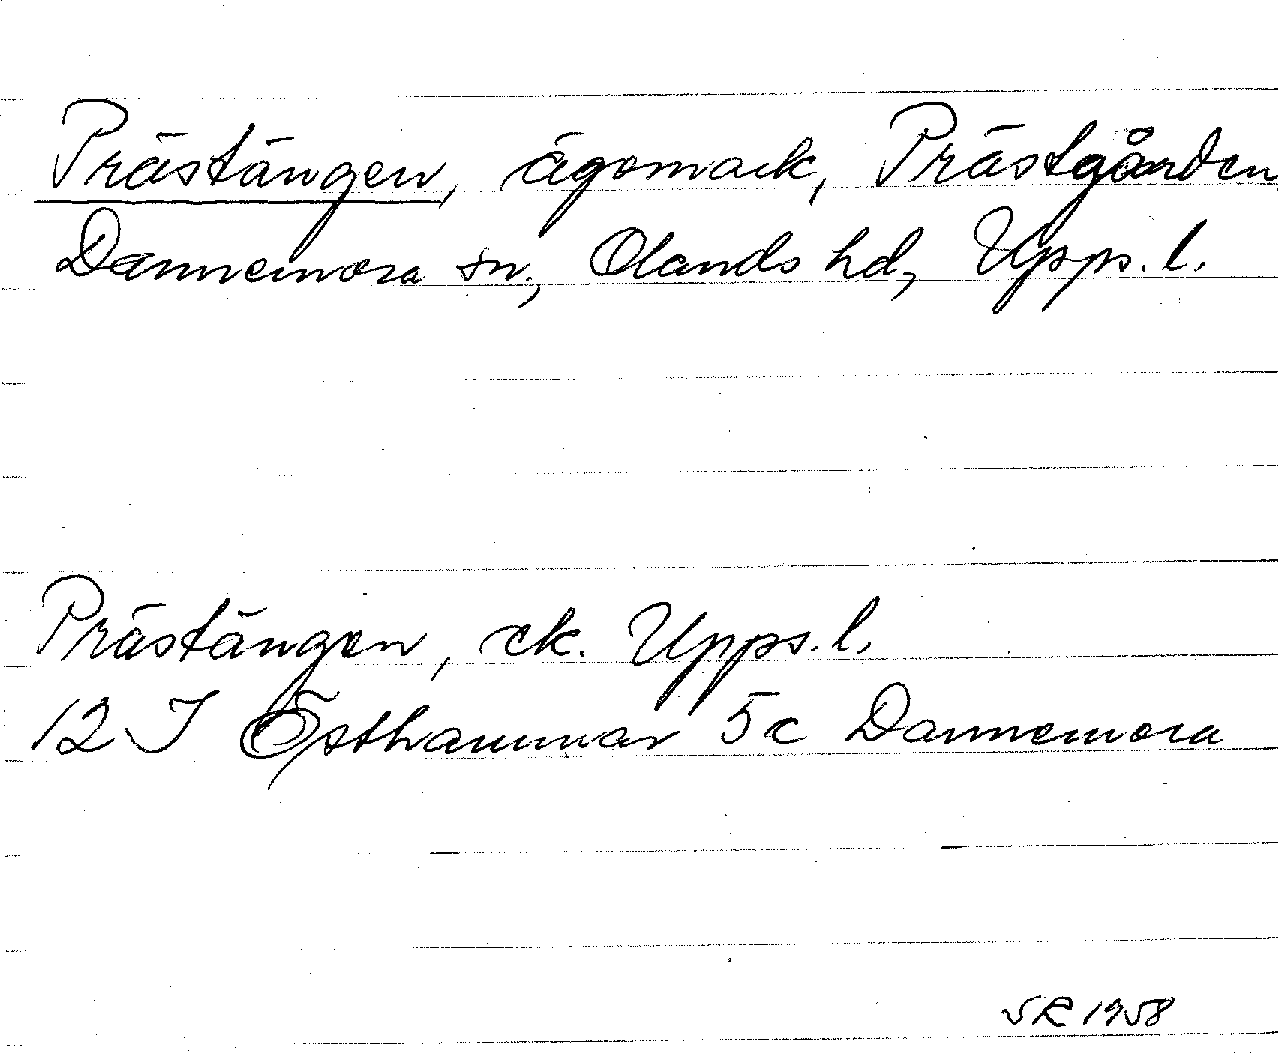 Prästängen, ägomark, Prästgården,
Dannemora sn., Olands hd, Upps. l.
Prästängen, ek. Upps. l.
12 I Östhammar 5c Dannemora
SR 1958